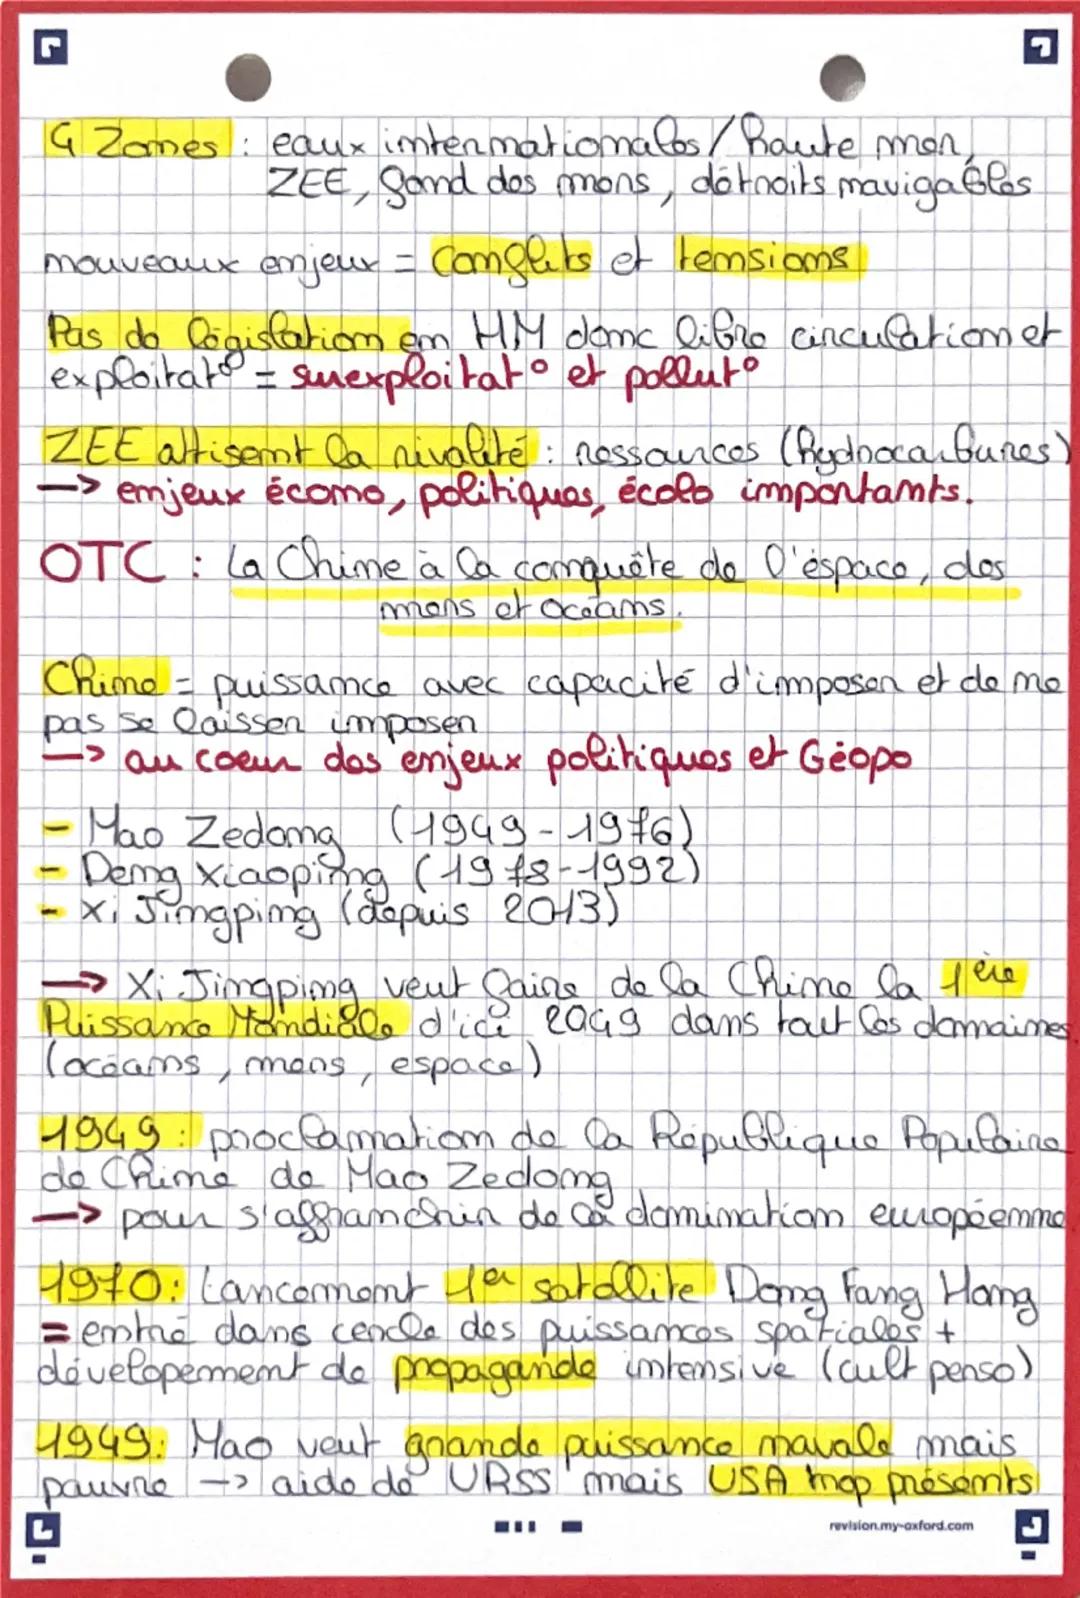 4 Zones : eaux internationales / haute mer,
ZEE, fond des mers, détroits navigables
nouveaux enjeux = conflits et tensions
Pas de législation en HM donc libre circulation et
exploitat° = surexploitat° et pollut°
ZEE attisent la rivalité : ressources (hydrocarbures)
--> enjeux écono, politiques, écolo importants.
OTC : La Chine à la conquête de l'éspace, des
mers et océans.
Chine = puissance avec capacité d'imposer et de ne
pas se laisser imposer
--> au coeur des enjeux politiques et Géopo
- Mao Zedong (1949-1976)
- Deng Xiaoping (1978-1992)
- Xi Jingping (depuis 2013)
--> Xi Jingping veut faire de la Chine la 1ère
Puissance Mondiale d'ici 2049 dans tout les domaines
(océans, mers, espace)
1949 : proclamation de la République Populaire
de Chine de Mao Zedong
--> pour s'affranchir de la domination européenne
1970 : Lancement 1er satellite Dong Fang Hong
= entré dans cercle des puissances spatiales +
dévelopement de propagande intensive (cult perso)
1949 : Mao veut grande puissance navale mais
pauvre -> aide de URSS mais USA trop présents
revision.my-oxford.com